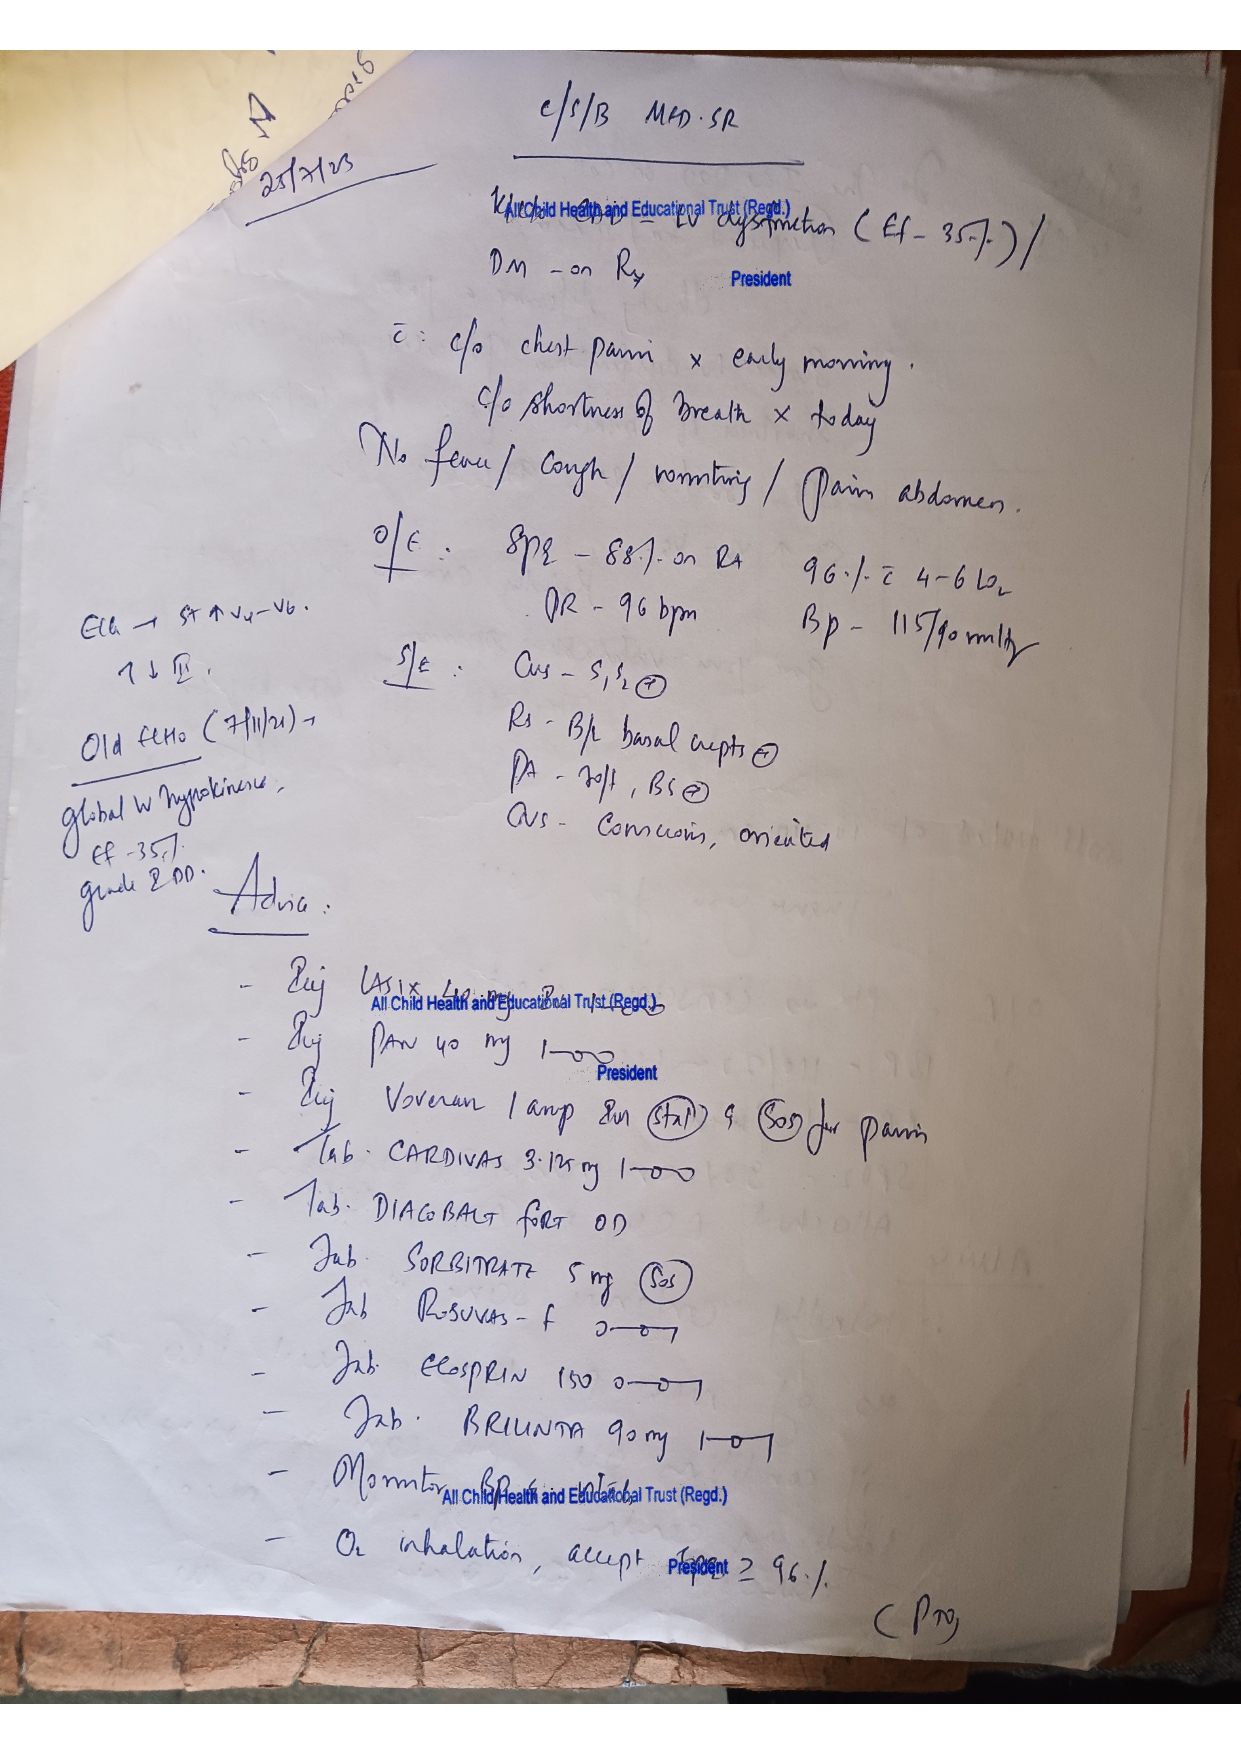 c/s/B MED. SR
25/7/23
All Child Health and Educational Trust (Regd.)
K/c/o CAD c̄ LV dysfunction (Ef - 35%) /
DM - on Rx
President
c̄: c/o chest pain x early morning.
c/o shortness of breath x today
No fever / cough / vomiting / pain abdomen.
O/E: SpO2 - 88% on RA 96% c̄ 4-6 L O2
PR - 96 bpm Bp - 115/90 mmHg
ECG → ST ↑ V4-V6.
↑↓ III.
S/E: CVS - S1S2 ⊕
Old ECHO (7/11/21) →
Rs - B/L basal crepts ⊕
global LV hypokinesia,
PA - soft, BS ⊕
Ef - 35%.
CNS - Conscious, oriented
grade 2 DD.
Advice:
- Inj LASIX 40 mg
All Child Health and Educational Trust (Regd.)
- Inj PAN 40 mg 1-0-0
President
- Inj Voveran 1 amp Im stat & SOS for pain
- Tab. CARDIVAS 3.125 mg 1-0-0
- Tab. DIACOBALT fORT OD
- Tab. SORBITRATE 5 mg SOS
- Tab ROSUVAS-f 0-0-1
- Tab. ECOSPRIN 150 0-0-1
- Tab. BRILINTA 90 mg 1-0-1
- Monitor BP &
All Child Health and Educational Trust (Regd.)
- O2 inhalation, accept SpO2 ≥ 96%
President
(PTO)